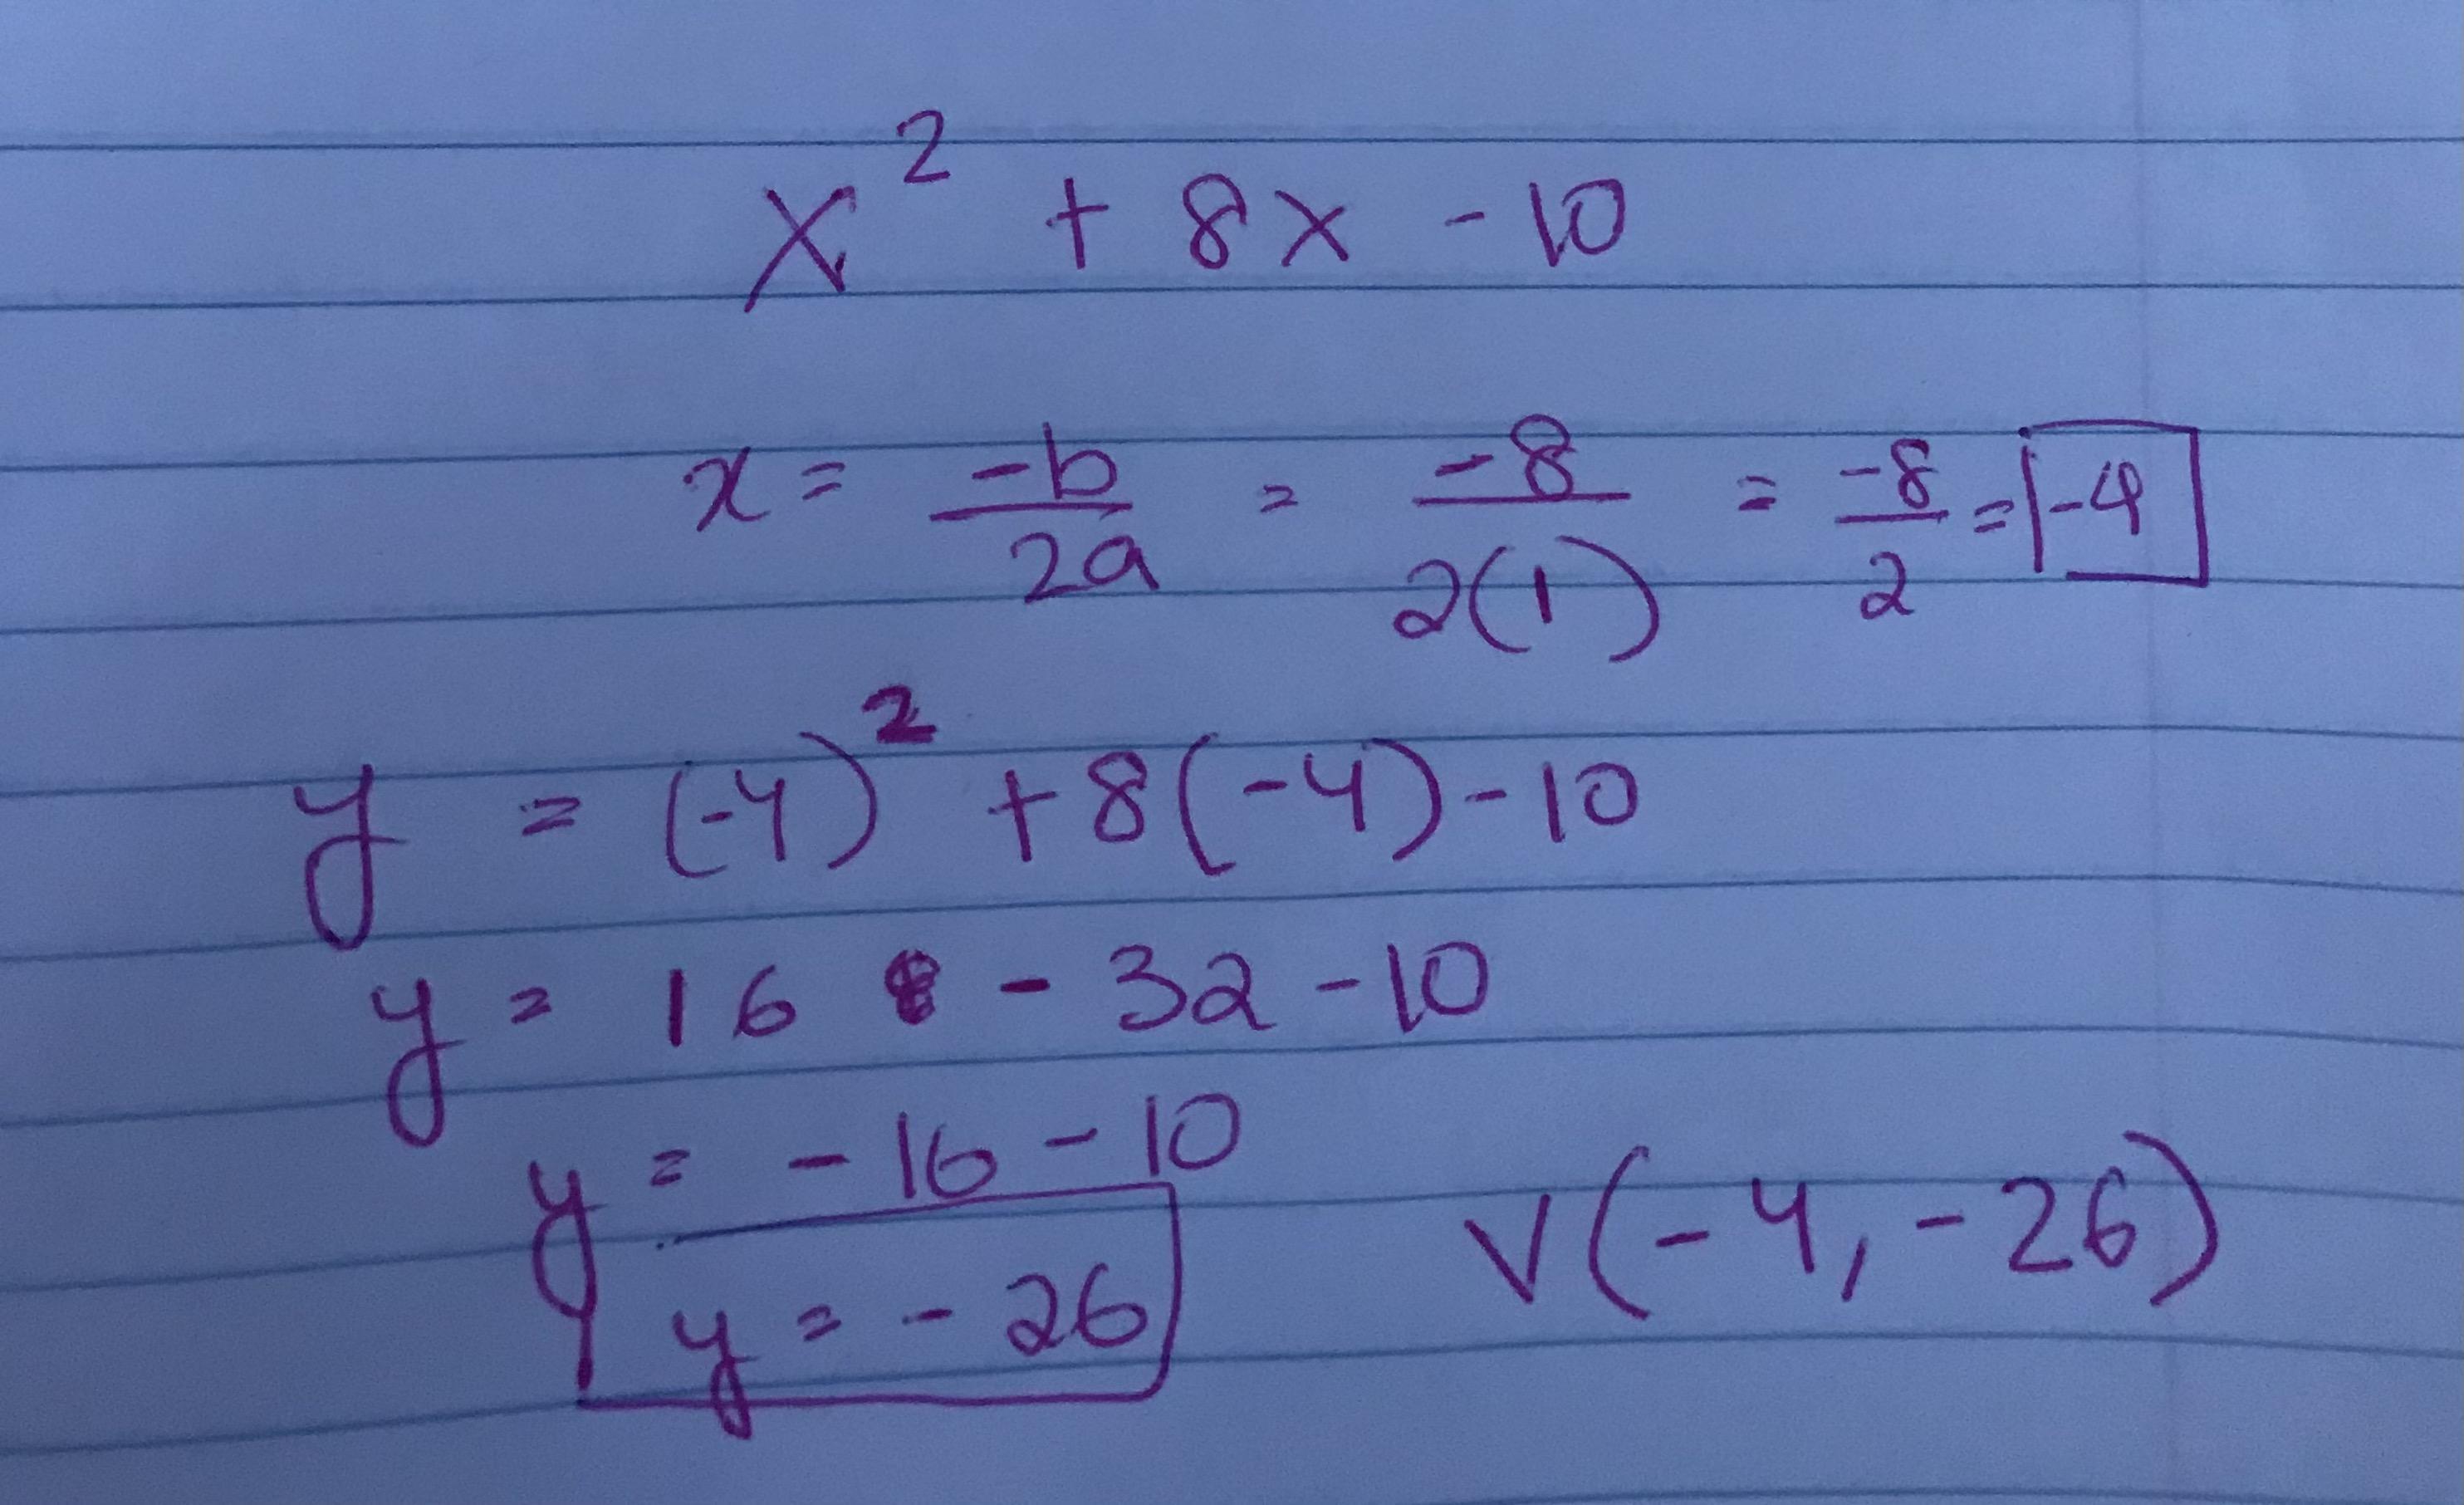 x² + 8x - 10
x = -b/2a = -8/2(1) = -8/2 = -4
y = (-4)² + 8(-4) - 10
y = 16 - 32 - 10
y = -16 - 10
y = -26
V(-4, -26)